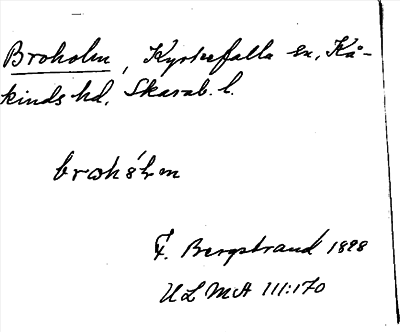 Broholm, Kyrkefalla sn, Kå-
kinds hd, Skarab. l.
F. Bergstrand 1898
ULMA 111:170